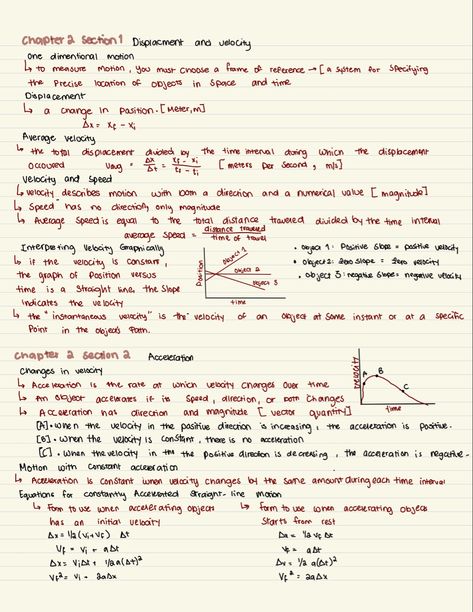 Chapter 2 Section 1 Displacment and velocity
one dimentional motion
↳ to measure motion, you must choose a frame of reference → [a system for specifying
the precise location of objects in space and time
Displacement
↳ a change in position. [Meter, m]
Δx = xf - xi
Average velocity
↳ the total displacement divided by the time interval during which the displacement
occured Vavg = Δx/Δt = xf - xi/tf - ti [meters per second, m/s]
Velocity and Speed
↳ velocity describes motion with both a direction and a numerical value [magnitude]
↳ Speed has no direction, only magnitude
↳ Average speed is equal to the total distance traveled divided by the time interval
average speed = distance traveled/time of travel
Interpreting Velocity Graphically
↳ if the velocity is constant,
the graph of position versus
time is a straight line, the slope
indicates the velocity
Position
object 1
object 2
object 3
time
• object 1: Positive slope = positive velocity
• object 2: zero slope = zero velocity
• object 3: negative slope = negative velocity
↳ the "instantaneous velocity" is the velocity of an object at some instant or at a specific
point in the objects path.
Chapter 2 section 2 Acceleration
Changes in velocity
↳ Acceleration is the rate at which velocity changes over time
↳ An object accelerates if its speed, direction, or both changes
↳ Acceleration has direction and magnitude [vector quantity]
velocity
A
B
C
time
[A] • when the velocity in the positive direction is increasing, the acceleration is positive.
[B] • when the velocity is constant, there is no acceleration
[C] • when the velocity in the positive direction is decreasing, the acceleration is negative.
Motion with constant acceleration
↳ Acceleration is constant when velocity changes by the same amount during each time interval
Equations for constantly Accelerated Straight-line motion
↳ form to use when accelerating objects
has an initial velocity
Δx = 1/2 (vi + vf) Δt
Vf = vi + aΔt
Δx = viΔt + 1/2 a(Δt)²
Vf² = vi² + 2aΔx
↳ form to use when accelerating objects
starts from rest
Δx = 1/2 vf Δt
Vf = aΔt
Δx = 1/2 a(Δt)²
Vf² = 2aΔx